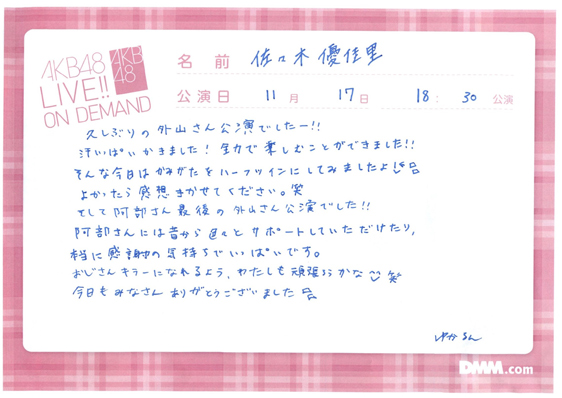 AKB48
LIVE!!
ON DEMAND
AKB
48
名前 佐々木優佳里
公演日 11月 17日 18:30公演
久しぶりの外山さん公演でしたー!!
汗いっぱいかきました!全力で楽しむことができました!!
そんな今日はかみがたをハーフツインにしてみましたよ
よかったら感想きかせてください。笑
そして阿部さん最後の外山さん公演でした!!
阿部さんには昔から色々とサポートしていただけたり、
本当に感謝の気持ちでいっぱいです。
おじさんキラーになれるよう、わたしも頑張ろうかな 笑
今日もみなさんありがとうございました
ゆかるん
DMM.com